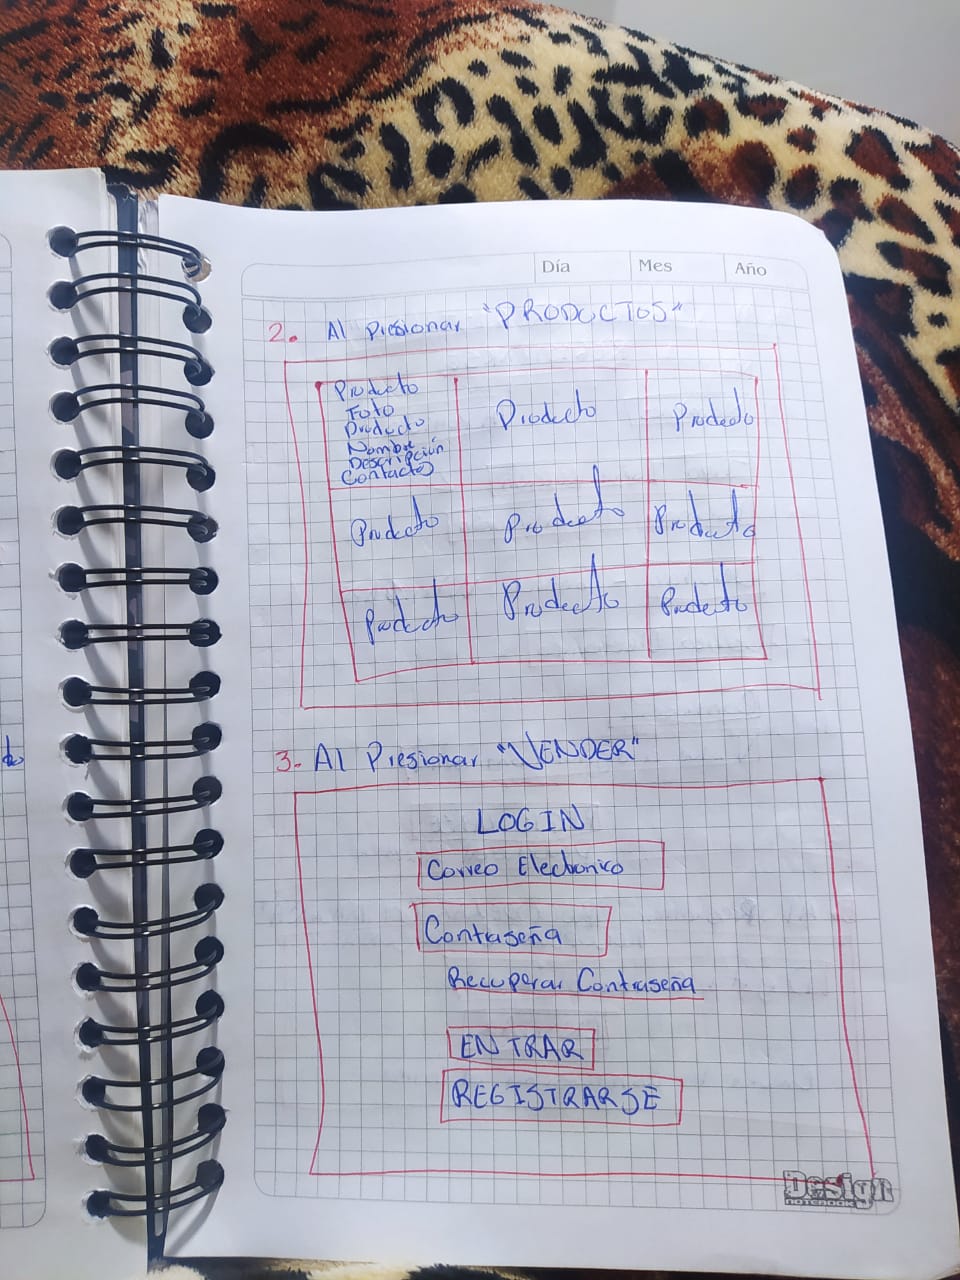 Día Mes Año
2. Al Presionar "PRODUCTOS"
Producto
Foto
Producto
Nombre
Descripción
Contactos
Producto
Producto
Producto
Producto
Producto
Producto
Producto
Producto
3. Al Presionar "VENDER"
LOGIN
Correo Electronico
Contraseña
Recuperar Contraseña
ENTRAR
REGISTRARSE
Design
NOTEBOOK